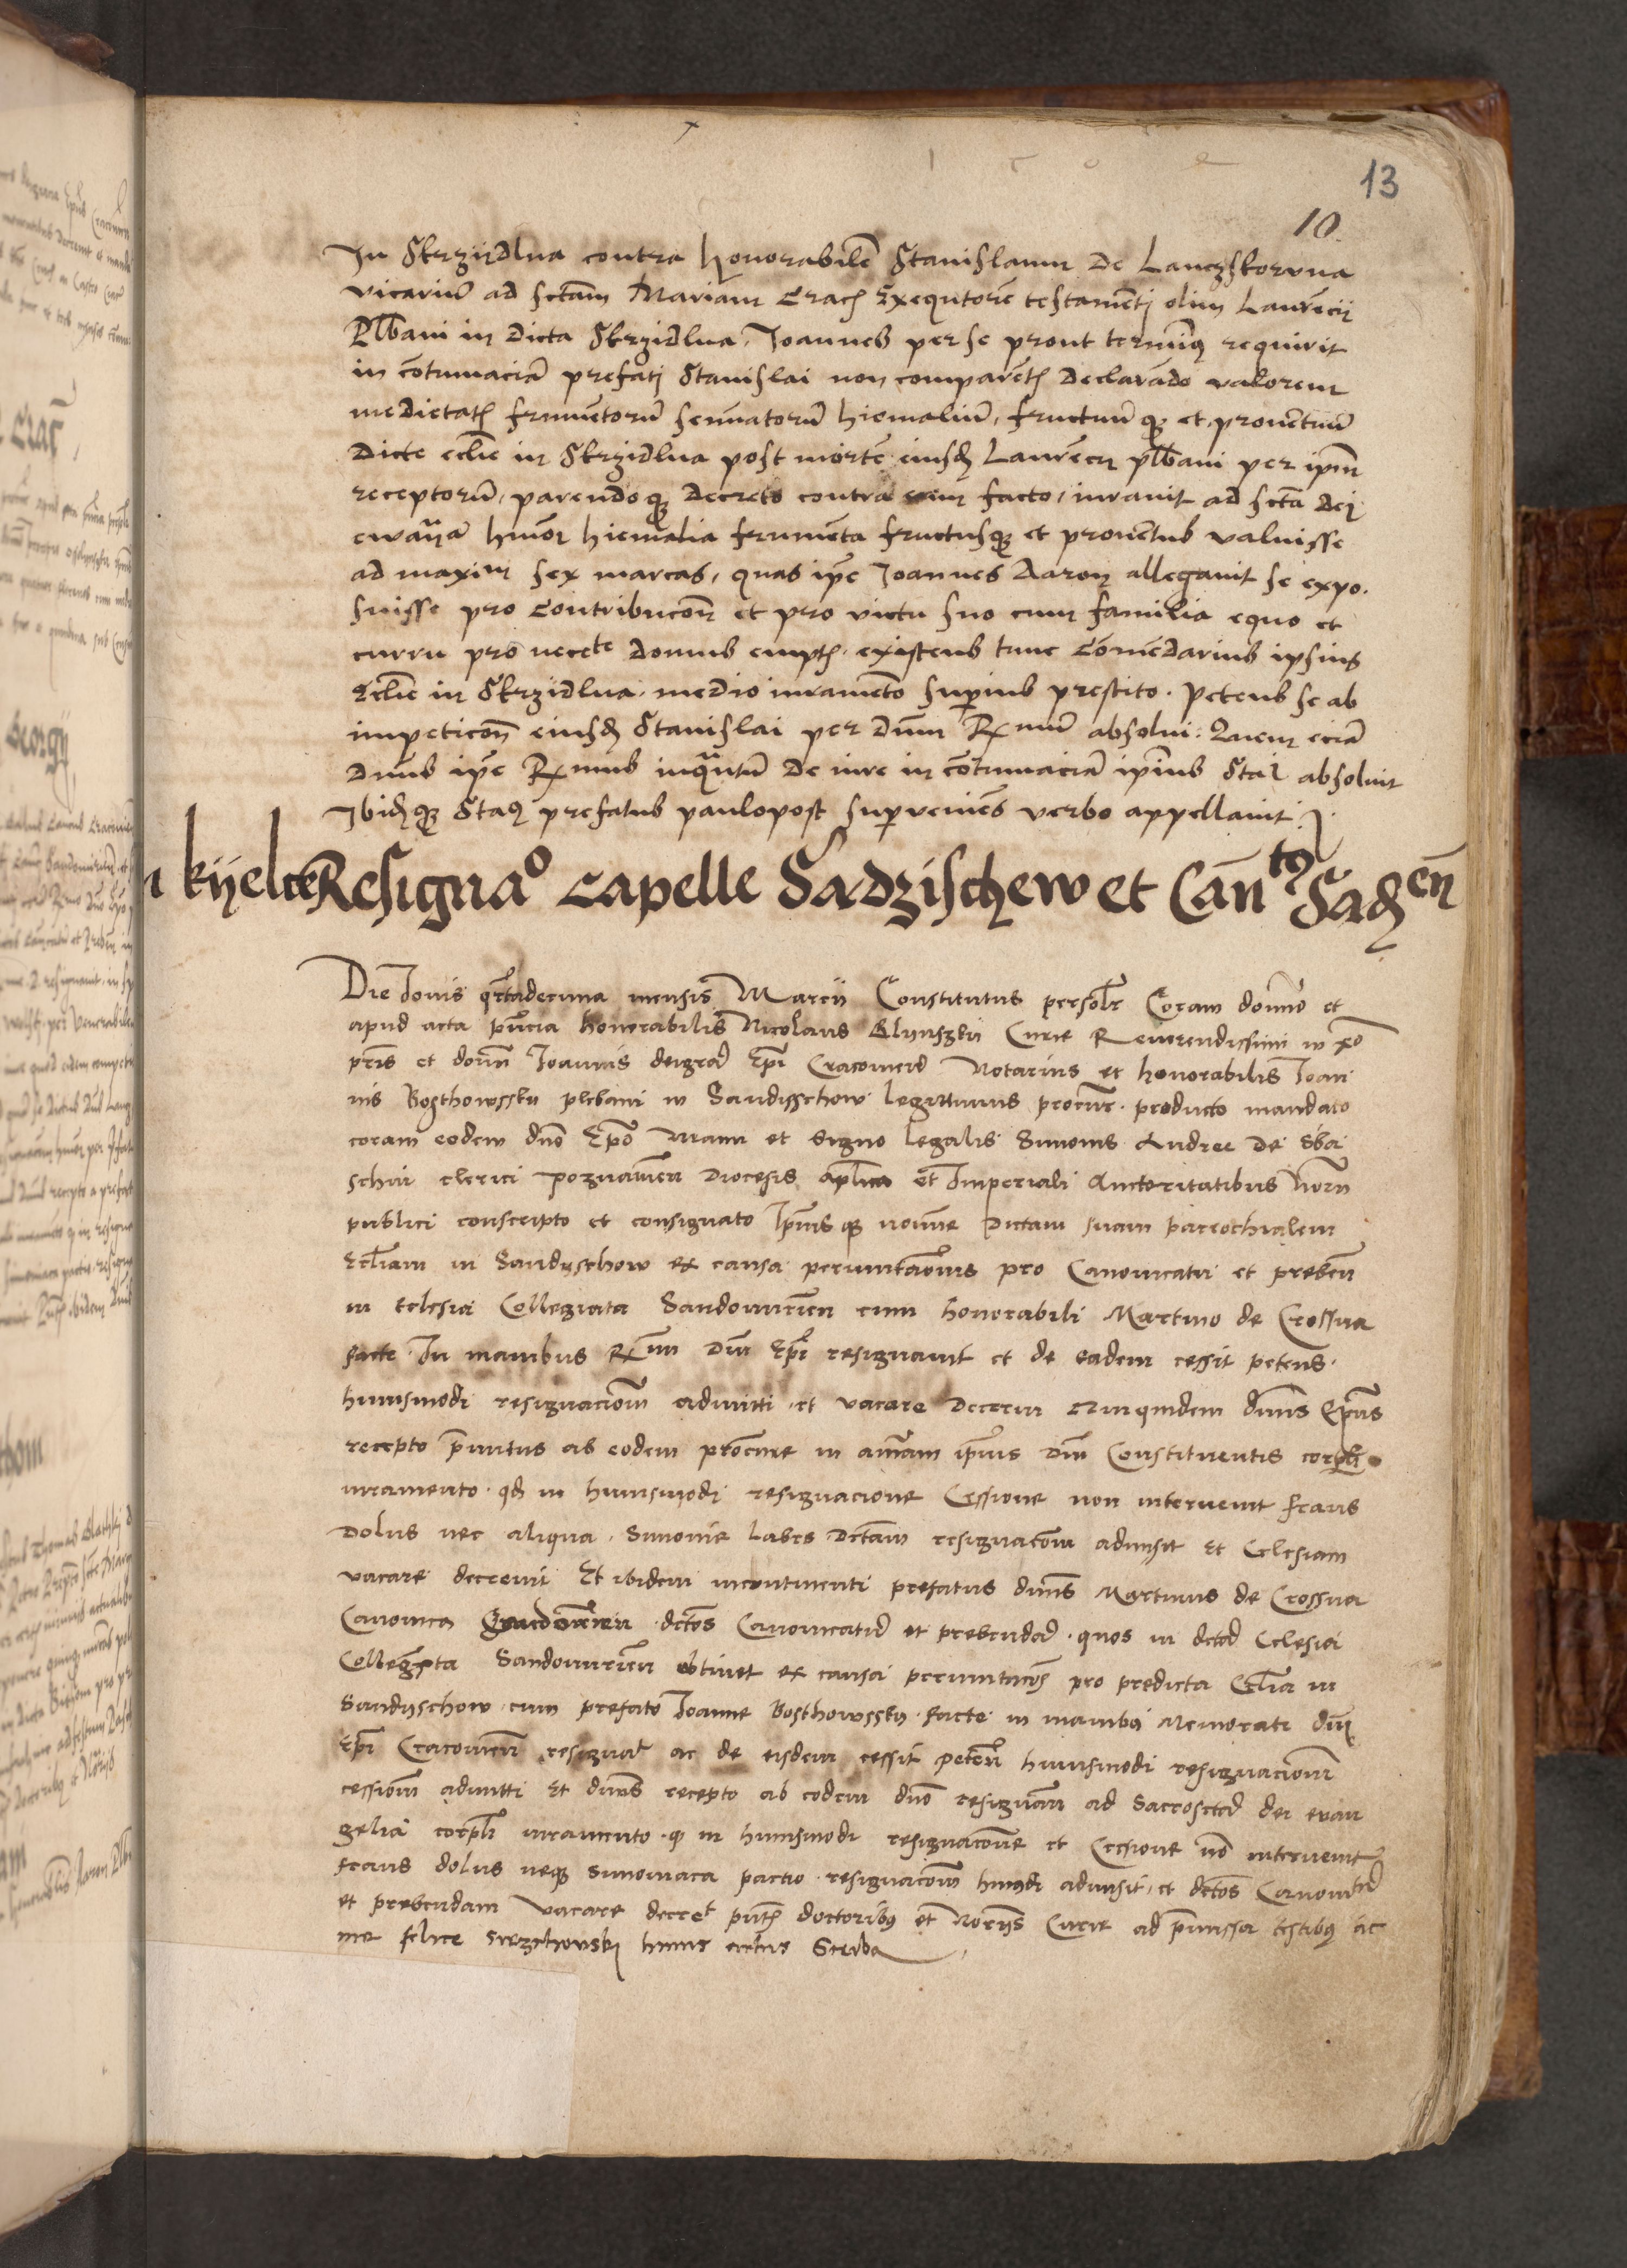 13
10.
In Skrzijdlna contra honorabilē Stanislaum de Lanczkorvna
vicariū ad sctam Mariam Crac Exequtorē testamenti olim Laurēcii
Plbani in dicta Skrzidlna, Joannes per se prout terminq requirit
in cōtumaciā prefati Stanislai non comparētis declarādo valorem
medietatis frumentorū seminatorū hiemaliū, fructuūqꝫ et proventuū
dicte eccliē in Skrzidlna post mortē eiusdē Laurēcii plbani per ipm
receptorū, parendoqꝫ decreto contra eum facto, iuravit ad scta dei
ewāā hmōi hiemalia frumenta fructusqꝫ et proventus valuisse
ad maximum sex marcas, quas ipe Joannes Aaron allegavit se expo-
suisse pro Contribucon et pro victu suo cum familia equo et
curru pro necete domus emptis. existens tunc Comēdarius ipsius
Eccliē in Skrzidlna, medio iuramēto superius prestito. Petens se ab
impeticon eiusdē Stanislai per dnm Rmum absolvi. Quem eciā
Dnus ipe Rmus inquantū de iure in cōtumaciā ipius Stai absolvit
Ibidēqꝫ Staus prefatus paulopost superveniēs verbo appellavit.
n kijelcen Resignao capelle Sadzischew et Can tq Saden
Die Jovis qrtadecima mensis Marcii Constitutus personlr Coram domino et
apud acta pncia honorabilis Nicolaus Glijnszkij Curie Reverendissimi in xpo
pris et domni Joannis dei gra Epi Cracoviens Notarius et honorabilis Joan
nis Bosthowsskij plebani in Sandisschow legittimus procur. producto mandato
coram eodem dno Epo Manu et signo legalis Simonis Andree de Sbą
schin clerici poznanien diocesis aplica et Imperiali Auctoritatibus Norii
publici conscripto et consignato Ipiusqꝫ nomine dictam suam parrochialem
Eccliam in Sandijschow ex causa permutacionis pro Canonicatu et preben
in eclesia Collegiata Sandomirien cum honorabili Martino de Crossna
facte. In manibus Rmi Dni Epi resignavit et de eadem cessit petens.
huiusmodi resignacionem admitti et vacare decerni Quiquidem dnus Epus
recepto primitus ab eodem procure in animam ipius dni Constituentis corpli
iuramento. qd in huiusmodi resignacione Cessione non intervenit fraus
dolus nec aliqua Simonie labes dictam resignacom admisit et Eclesiam
vacare decrevit Et ibidem incontinenti prefatus dnus Martinus de Crossna
Canonica Sandomirien. dictos Canonicatū et prebendā. quos in dicta Eclesia
Collegiata Sandomirien obtinet ex causa permutacois pro predicta Eclia in
Sandijschow. cum prefato Joanne Bosthowssky. facte in manibus memorati dni
Epi Cracovien resignat ac de eisdem cessit petens huiusmodi resignacionem
cessionem admitti Et dnus recepto ab eodem dno resignan ad Sacroscta dei evan
gelia corpli iuramento. qd in huiusmodi resignacone et Cessione nō intervenit
fraus dolus neqꝫ simoniaca pactio. resignacom hmodi admisit, et dictos Canonicatū
et prebendam vacare decrevt pntibus doctoribus et Noriis Curie ad premissa testibus ac
me felice Swzchowski huius actus Scriba